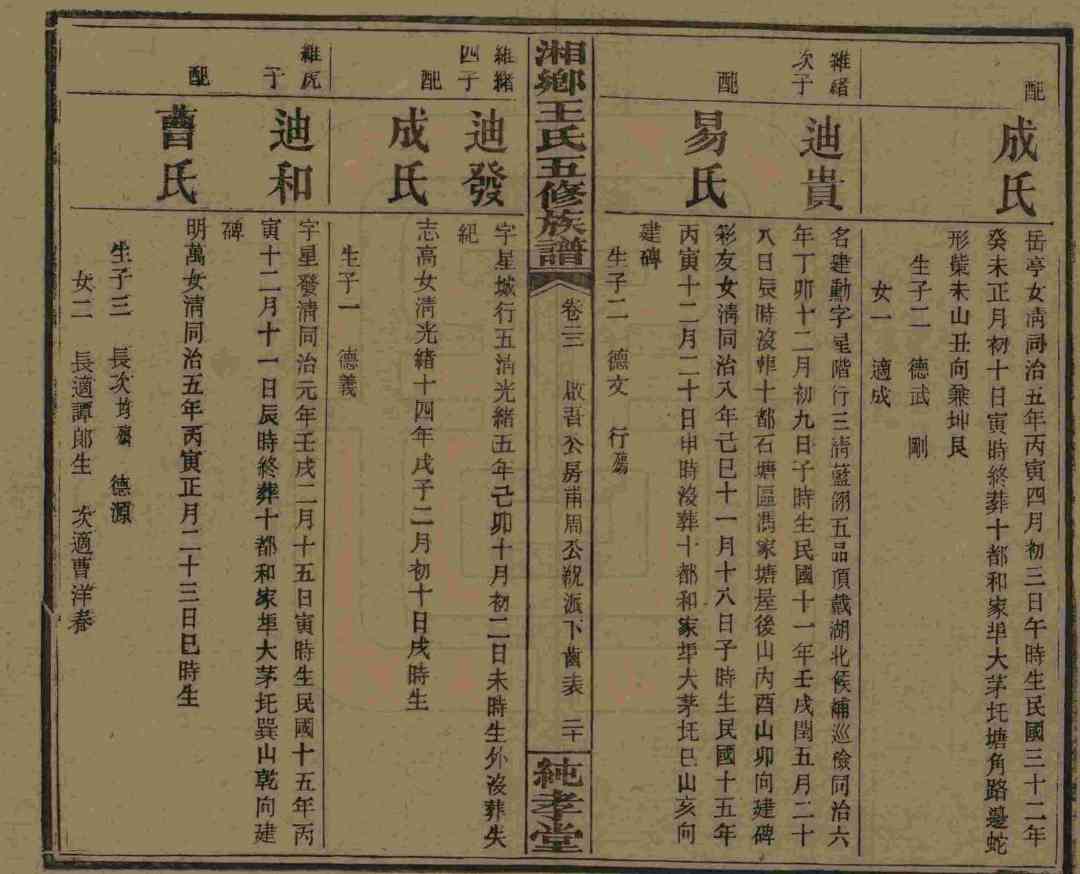 配
成氏
岳亭女清同治五年丙寅四月初三日午時生民國三十二年
癸未正月初十日寅時終葬十都和家埠大茅圫塘角路邊蛇
形柴未山丑向兼坤艮
生子二　德武　剛
女一　適成
維緒
次子
迪貴
名建勳字星階行三清藍翎五品頂戴湖北候補巡檢同治六
年丁卯十二月初九日子時生民國十一年壬戌閏五月二十
八日辰時沒葬十都石塘區馮家塘屋後山內酉山卯向建碑
配
易氏
彩友女清同治八年己巳十一月十八日子時生民國十五年
丙寅十二月二十日申時沒葬十都和家埠大茅圫巳山亥向
建碑
生子二　德文　行殤
湘鄉王氏五修族譜
卷三　啟吾公房甫周公派下齒表　二十
純孝堂
維緒
四子
迪發
字星城行五清光緒五年己卯十月初二日未時生外沒葬失
紀
配
成氏
志高女清光緒十四年戊子二月初十日戌時生
生子一　德義
維虎
子
迪和
字星發清同治元年壬戌二月十五日寅時生民國十五年丙
寅十二月十一日辰時終葬十都和家埠大茅圫巽山乾向建
碑
配
曹氏
明萬女清同治五年丙寅正月二十三日巳時生
生子三　長次均殤　德源
女二　長適譚郎生　次適曹洋春